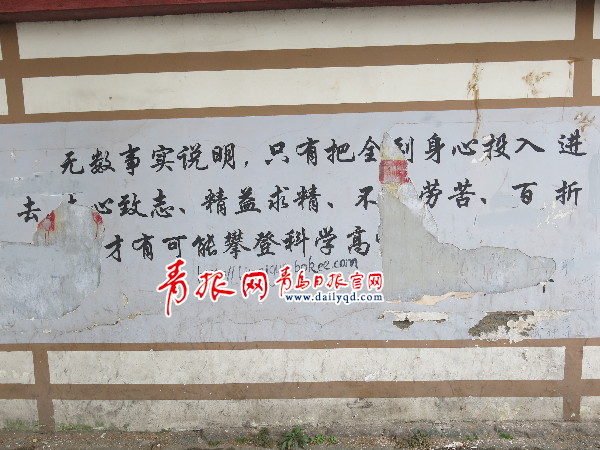 无数事实说明，只有把全 到身心投入 进
去 心致志、精益求精、不 劳苦、百 折
才有可能攀登科学高
青报网 青岛日报官网
www.dailyqd.com